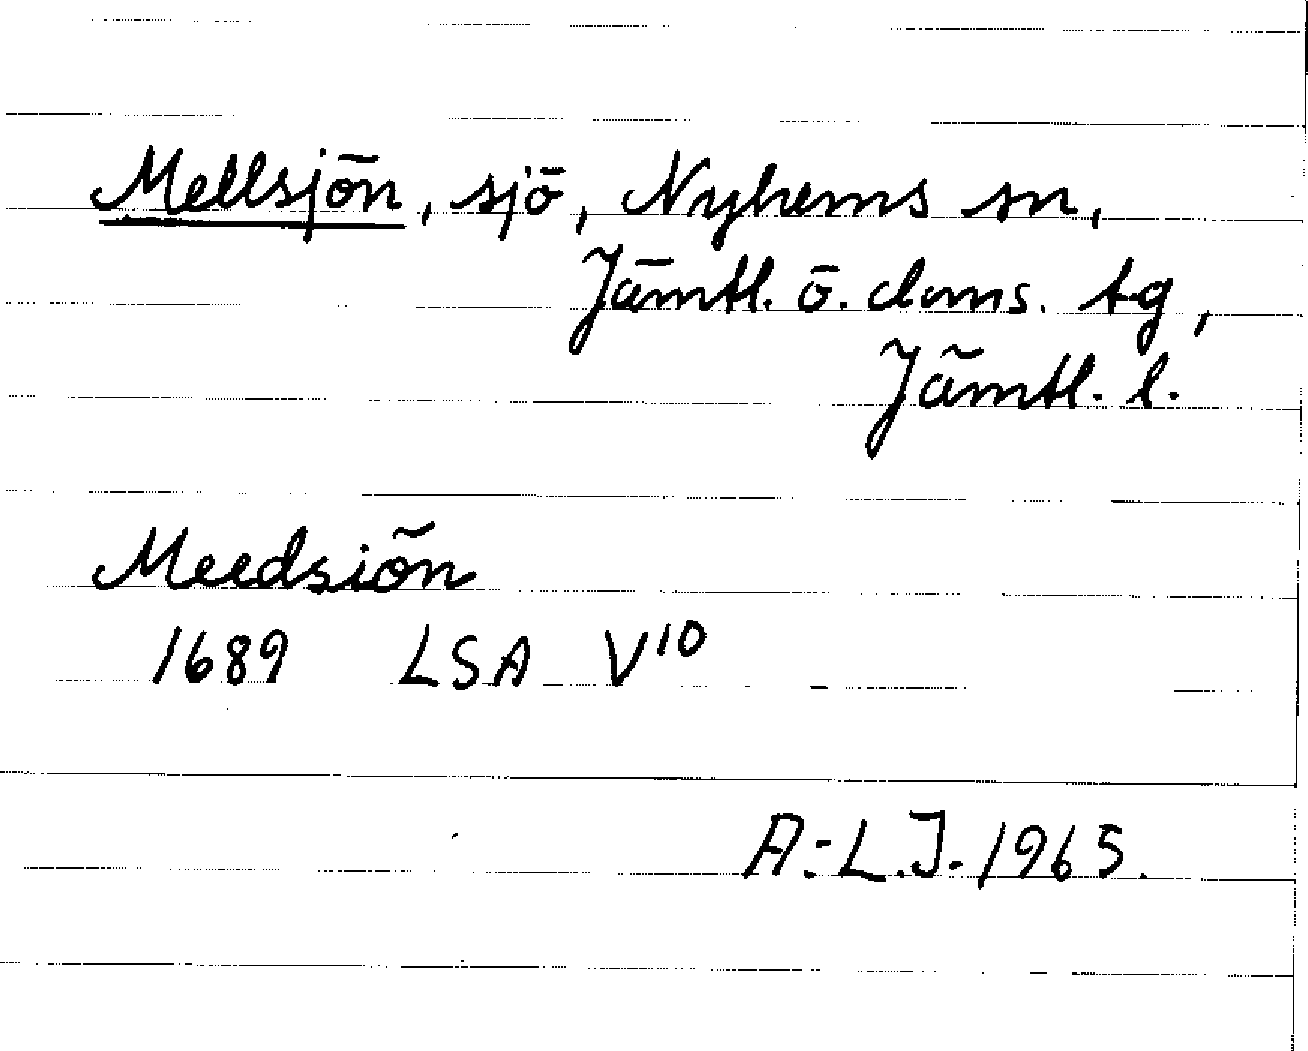 Mellsjön, sjö, Nyhems sn,
Jämtl. ö. doms. tg,
Jämtl. l.
Meedsiön
1689 LSA V¹⁰
A.-L.J. 1965.